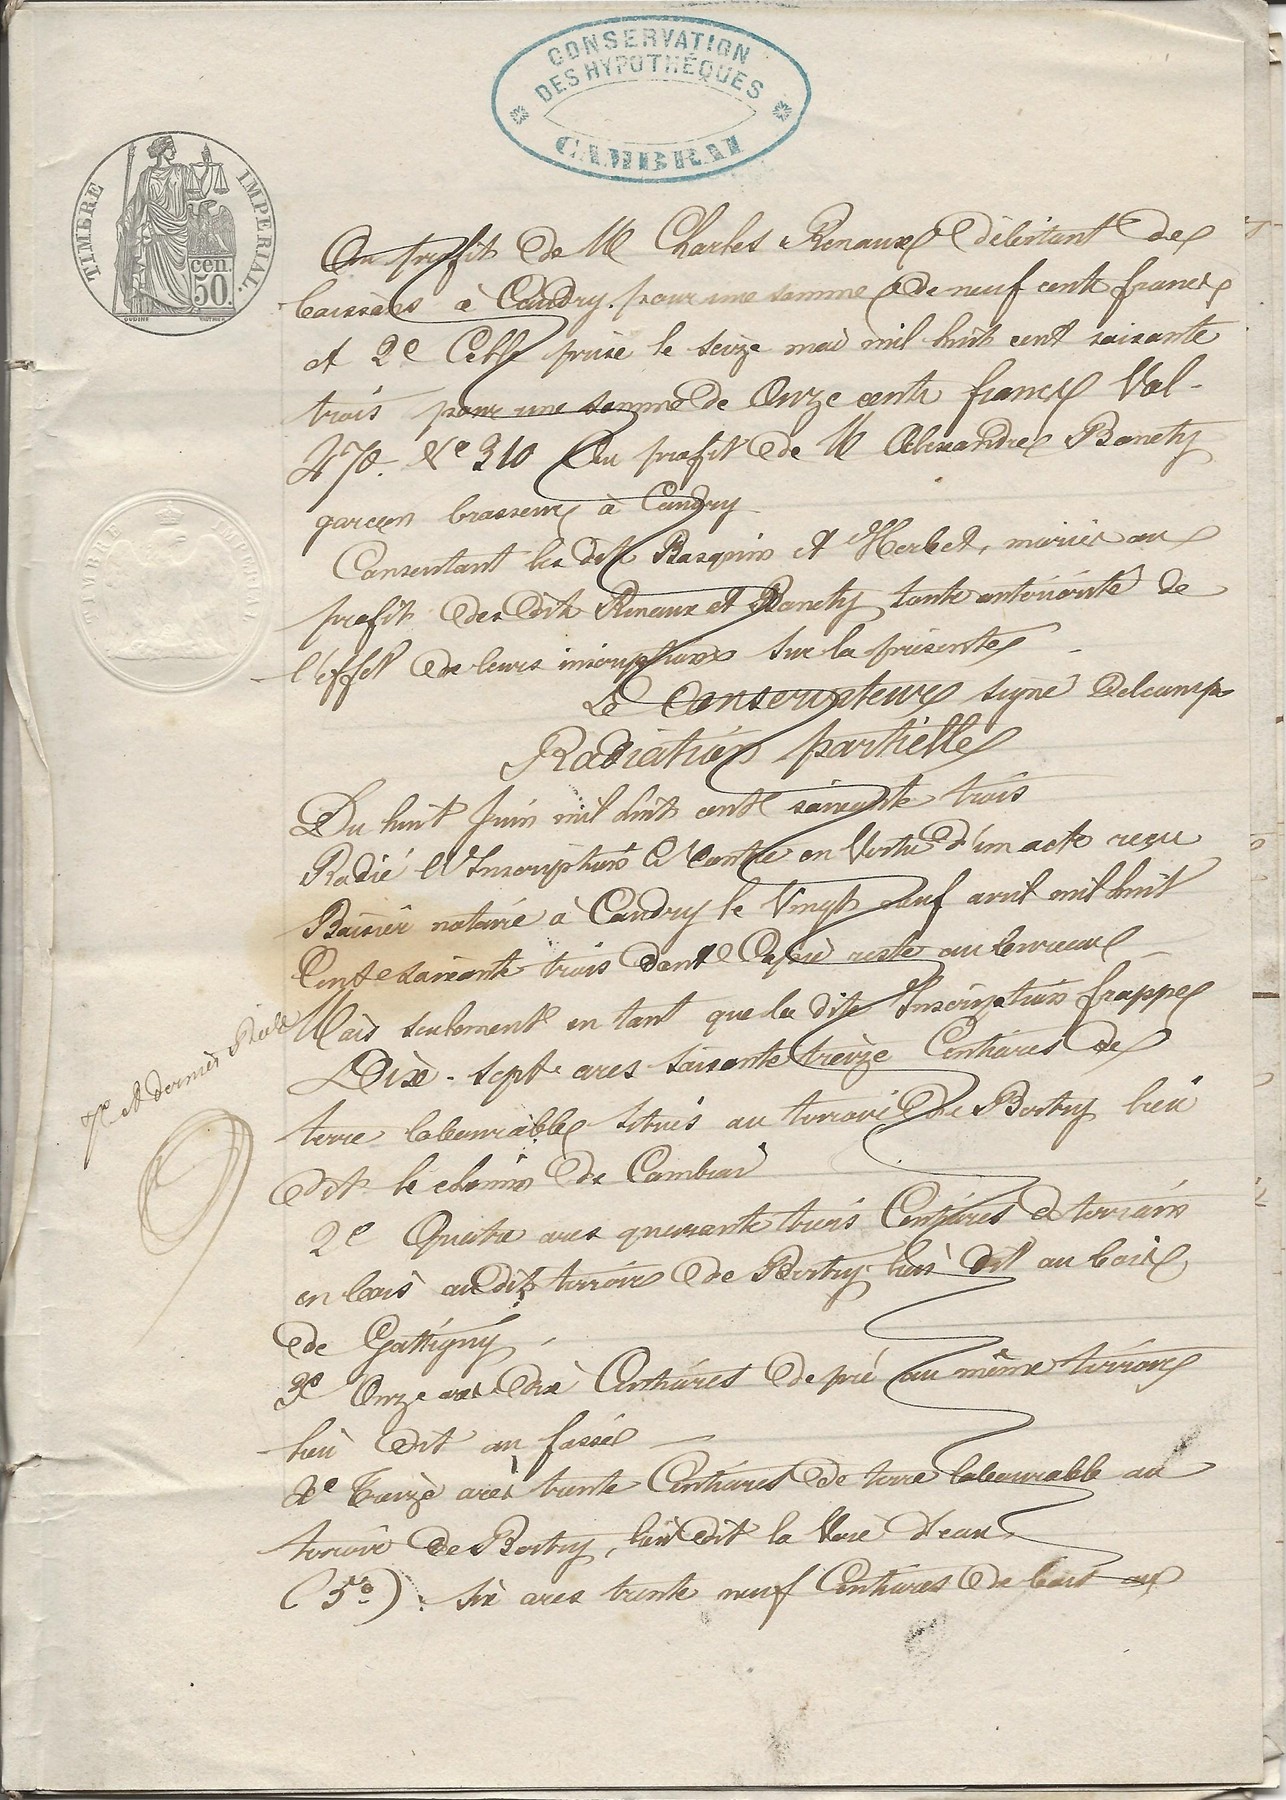 CONSERVATION
DES HYPOTHÉQUES
CAMBRAI
TIMBRE IMPERIAL.
50 cen.
TIMBRE IMPERIAL
Au profit de M Charles Renaux débitant de
boissons à Caudry pour une somme de neuf cent francs
et 2e Celle prise le seize mai mil huit cent soixante
trois pour une somme de Onze cents francs Vol-
470. No 310 Au profit de M Alexandre Banety
garçon brasseur à Caudry
Consentant les dits Basquin et Herbet, mariés au
profit des dits Renaux et Banety toute antériorité de
l'effet de leurs inscriptions sur la présente
Le Conservateur signé Delcamp
Radiation partielle
Du huit Juin mil huit cent soixante trois
Radié l'Inscription Ci Contre en Vertu d'un acte reçu
notaire à Caudry le Vingt neuf avril mil huit
Cent soixante trois dont Copie reste au bureau
Mais seulement en tant que la dite Inscription frappe
Dix-sept ares soixante treize Centiares de
terre labourable situés au terroir de Bertry lieu
dit le chemin de Cambrai
2e Quatre ares quarante trois Centiares de terrain
en bois au dit terroir de Bertry lieu dit au bois
de Gattigny
3e Onze ares dix Centiares de pré au même terroir
lieu dit au fossé
4e Treize ares trente Centiares de terre labourable au
terroir de Bertry, lieu dit la Voie d'eau
(5o). Six ares trente neuf Centiares de bois au
7e et dernier Rôle